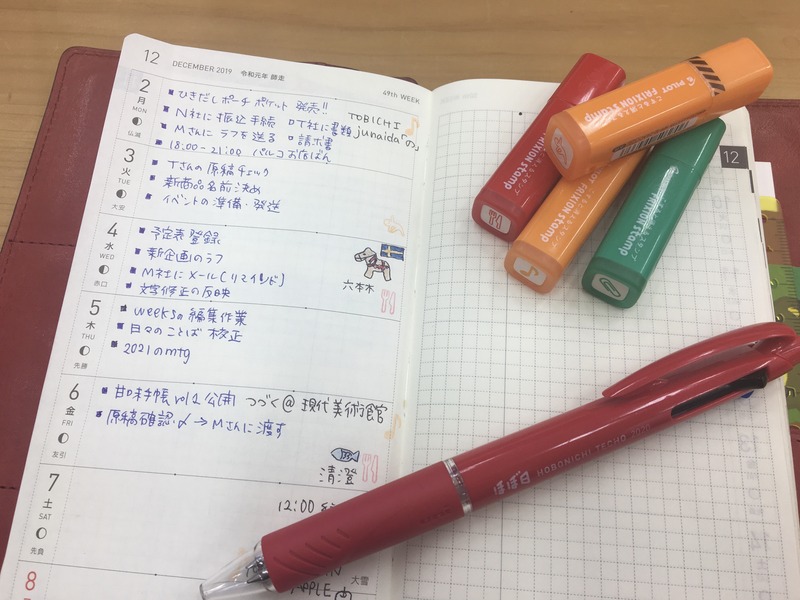 12 DECEMBER 2019 令和元年 師走
49th WEEK
2 月 MON 仏滅
ひきだしポーチ ポケット 発売!!
N社に振込手続 ロT社に書類
Mさんに ラフを送る ロ請求書
18:00-21:00 パルコ お店ばん
TOBICHI
junaida「の」
3 火 TUE 大安
Tさんの原稿チェック
新商品名前決め
イベントの準備・発送
4 水 WED 赤口
予定表登録
新企画のラフ
M社にメール(リマインド)
文字修正の反映
六本木
5 木 THU 先勝
weeksの編集作業
日々のことば 校正
2021のmtg
6 金 FRI 友引
甘味手帳 vol.1 公開 つづく@ 現代美術館
原稿確認・〆→Mさんに渡す
清澄
7 土 SAT 先負
12:00
8
大雪
APPLE
12
PILOT FRIXION Stamp
こすると消えるスタンプ
FRIXION Stamp
FRIXION Stamp
FRIXION Stamp
ほぼ日 HOBONICHI TECHO 2020